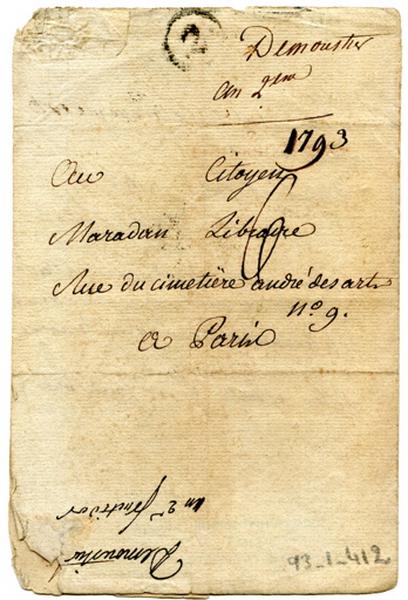 Demoustier
an 2em
1793
Au Citoyen
Maradan Libraire
Rue du cimetière andré des arts
N° 9.
a Paris
Demoustier
an 2e
93-1-412